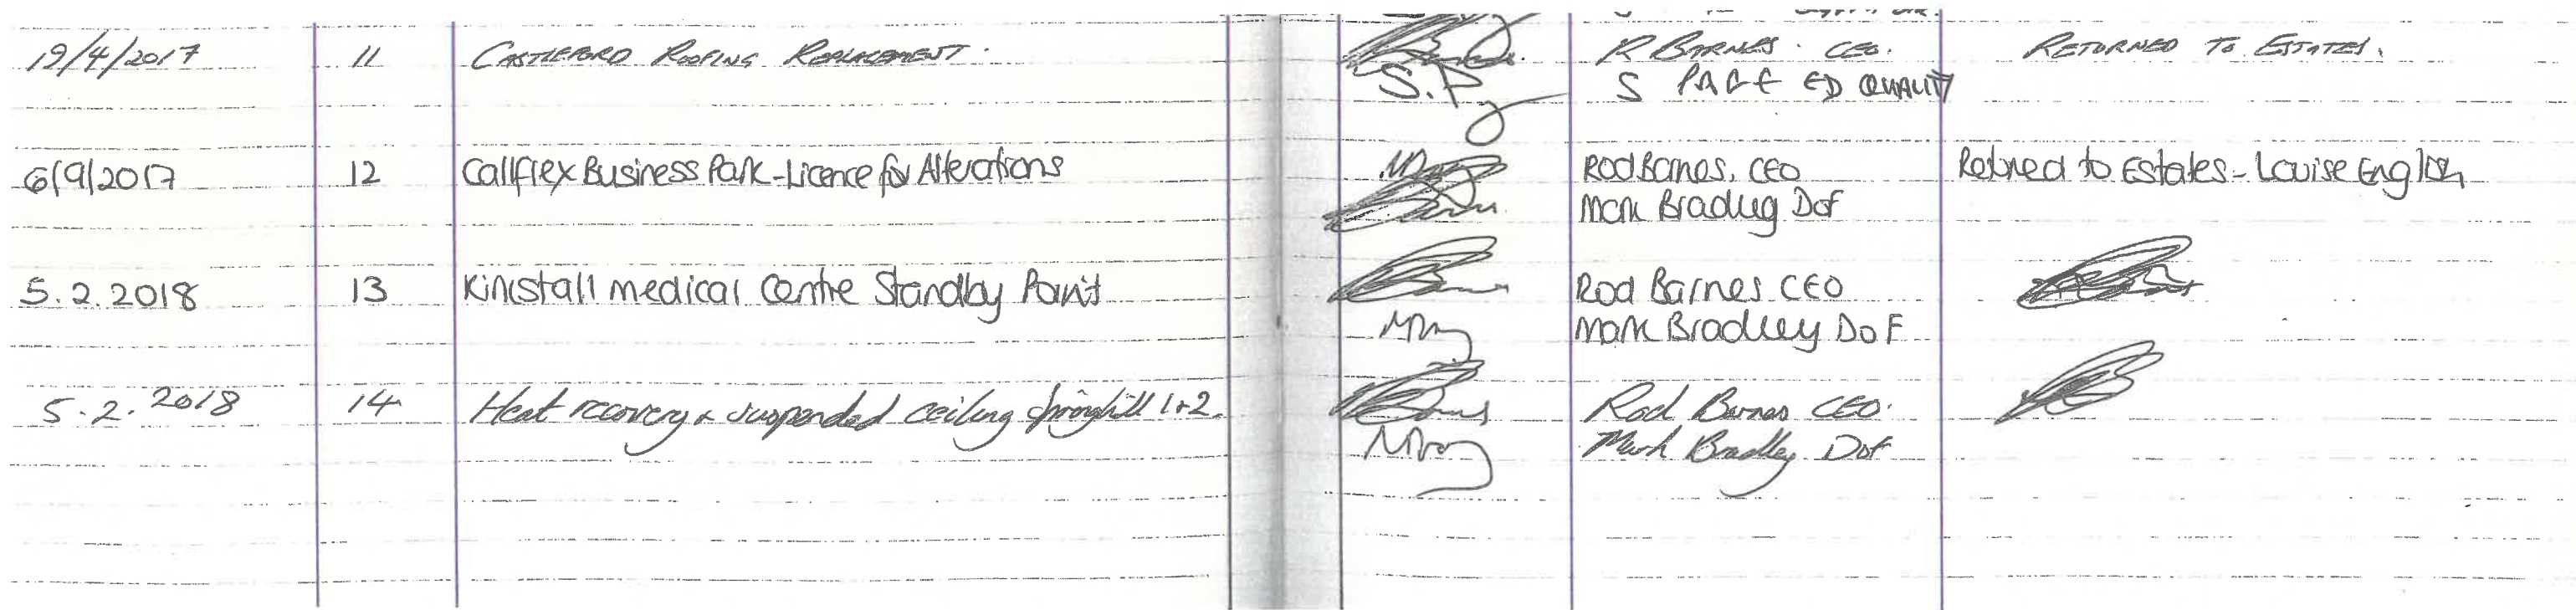 19/4/2017 11 CASTLEFORD ROOFING REPLACEMENT. R BARNES. CEO. RETURNED TO ESTATES.
S.P S PAGE ED QUALITY
6/9/2017 12 Callflex Business Park-Licence for Alterations Rod Barnes, CEO Retned to Estates - Louise English
Mark Bradley DoF
5.2.2018 13 Kinstall medical Centre Standby Point Rod Barnes CEO
Mark Bradley DoF
5.2.2018 14 Heat recovery + suspended ceiling Springhill 1+2. Rod Barnes CEO.
Mark Bradley DoF